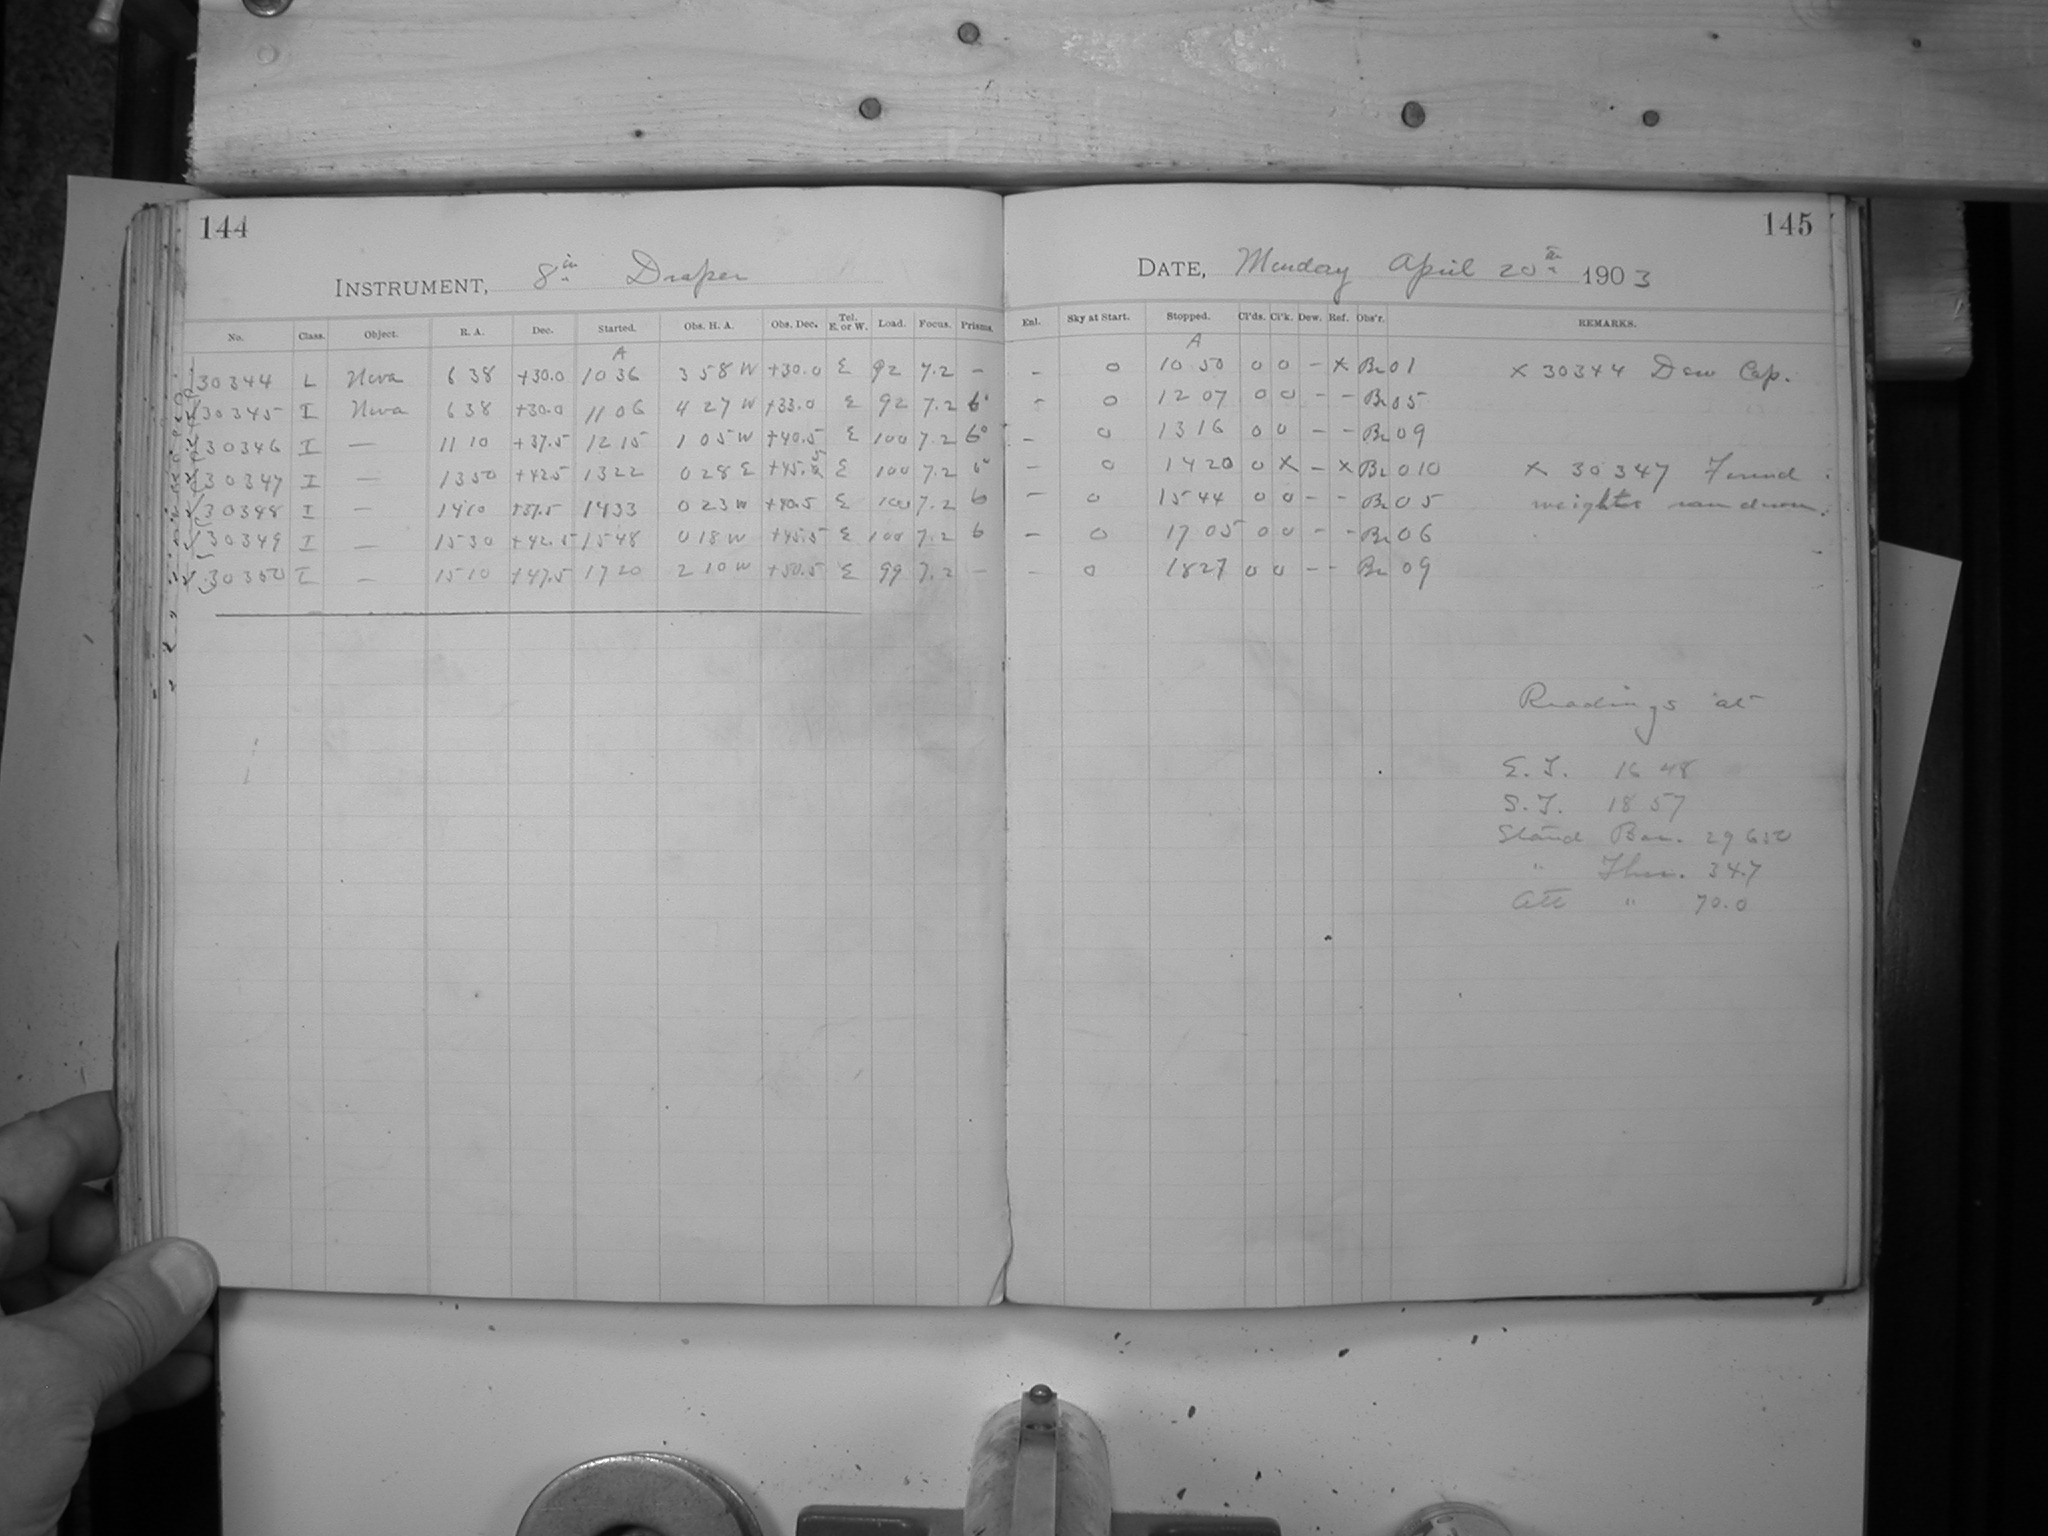 144
145
INSTRUMENT, 8 in Draper
DATE, Monday April 20th 1903
No. Class. Object. R. A. Dec. Started. Obs. H. A. Obs. Dec. Tel. E. or W. Load. Focus. Prisms. Enl. Sky at Start. Stopped. Cl'ds. Cl'k. Dew. Ref. Obs'r. REMARKS.
A A
30344 L Nova 6 38 +30.0 10 36 3 58 W +30.0 E 92 7.2 – – 0 10 50 0 0 – x Br 01 x 30344 Dew Cap.
30345 I Nova 6 38 +30.0 11 06 4 27 W +33.0 E 92 7.2 6° – 0 12 07 0 0 – – Br 05
30346 I — 11 10 +37.5 12 15 1 05 W +40.5 E 100 7.2 6° – 0 13 16 0 0 – – Br 09
30347 I — 13 50 +42.5 13 22 0 28 E +45.5 E 100 7.2 6° – 0 14 20 0 x – x Br 010 x 30347 Found
30348 I — 14 10 +37.5 14 33 0 23 W +40.5 E 100 7.2 6 – 0 15 44 0 0 – – Br 05 weights run down.
30349 I — 15 30 +42.5 15 48 0 18 W +45.5 E 100 7.2 6 – 0 17 05 0 0 – – Br 06
30350 I — 15 10 +47.5 17 20 2 10 W +50.5 E 99 7.2 – – 0 18 27 0 0 – – Br 09
Readings at
E. T. 16 48
S. T. 18 57
Stand Bar. 29 650
" Ther. 34.7
Att " 70.0